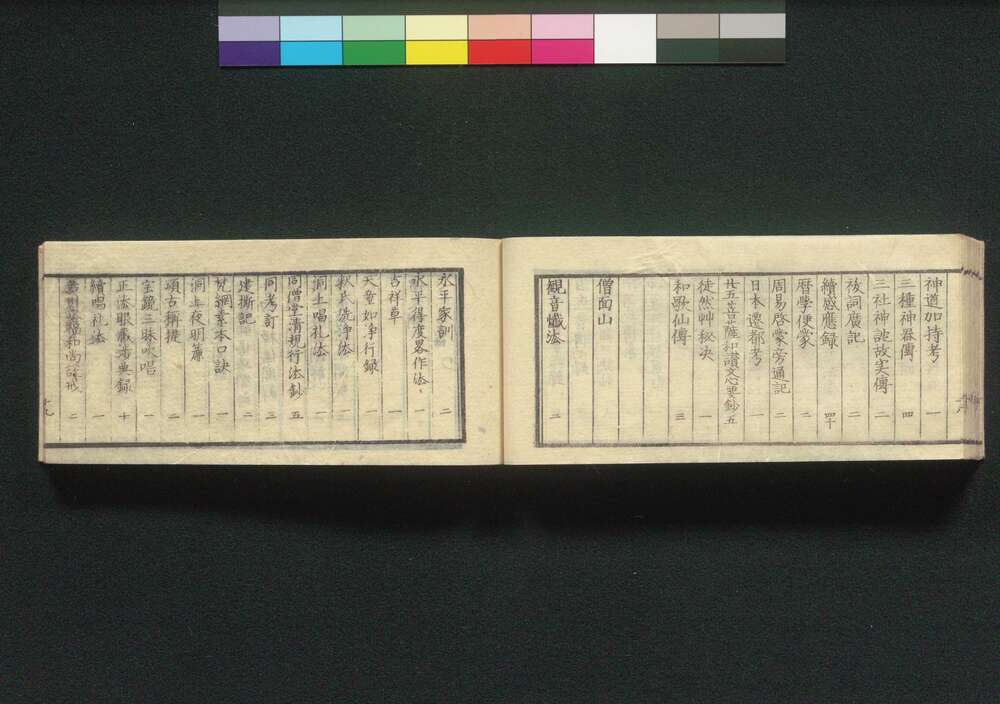 神道加持考 一
三種神器傳 四
三社神託故実傳 二
祓詞廣記 二
續感應録 四十
暦學便蒙 二
周易啓蒙旁通記 二
日本遷都考 一
廿五菩薩和讃文心要鈔 五
徒然艸秘决 一
和歌仙傳 三
僧面山
観音懺法 二
永平家訓 二
永平得度畧作法 一
吉祥草 一
天童如浄行録 一
釈氏洗浄法 一
洞上唱礼法 一
同僧堂清規行法鈔 五
同考訂 三
建撕記 二
梵網素本口訣 一
洞上夜明簾 一
頌古稱提 二
宝鏡三昧吹唱 一
正法眼藏渉典録 十
續唱礼法 一
和尚 二